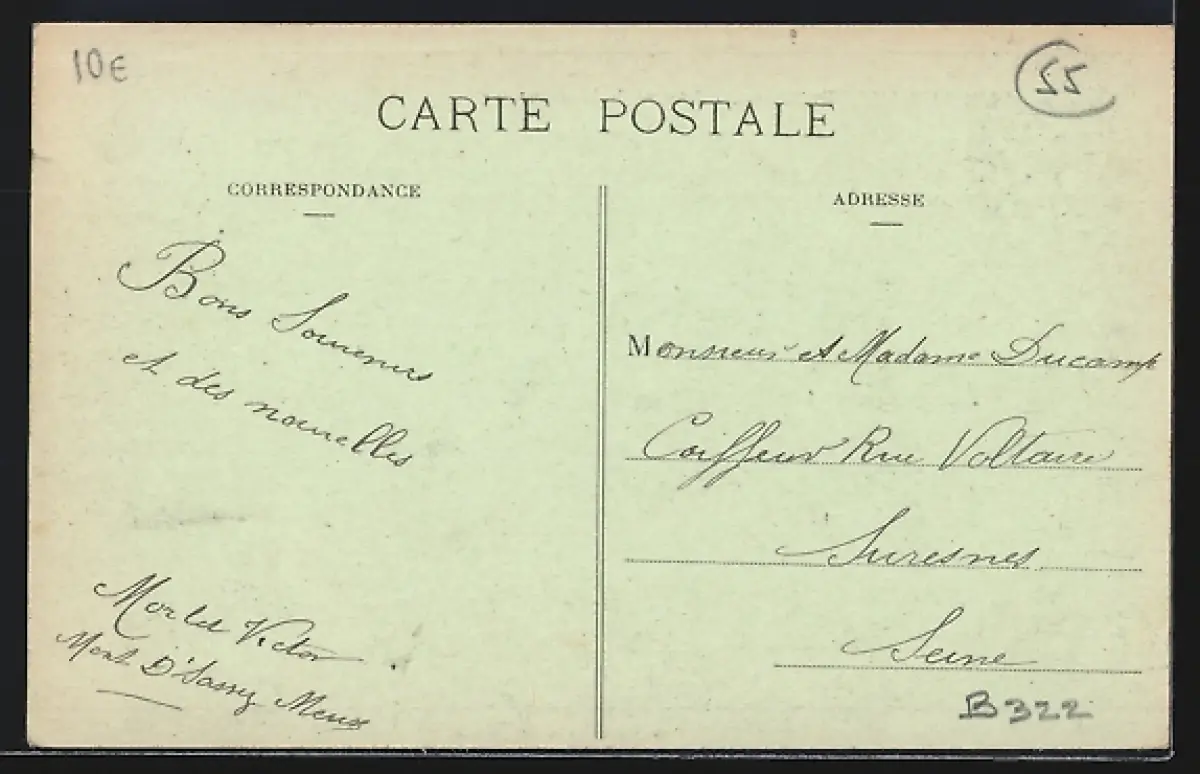 10€
55
CARTE POSTALE
CORRESPONDANCE
Bons Souvenirs
et des nouvelles
Morlet Victor
Mont D'Sassey Meuse
ADRESSE
Monsieur et Madame Ducamp
Coiffeur Rue Voltaire
Suresnes
Seine
B322